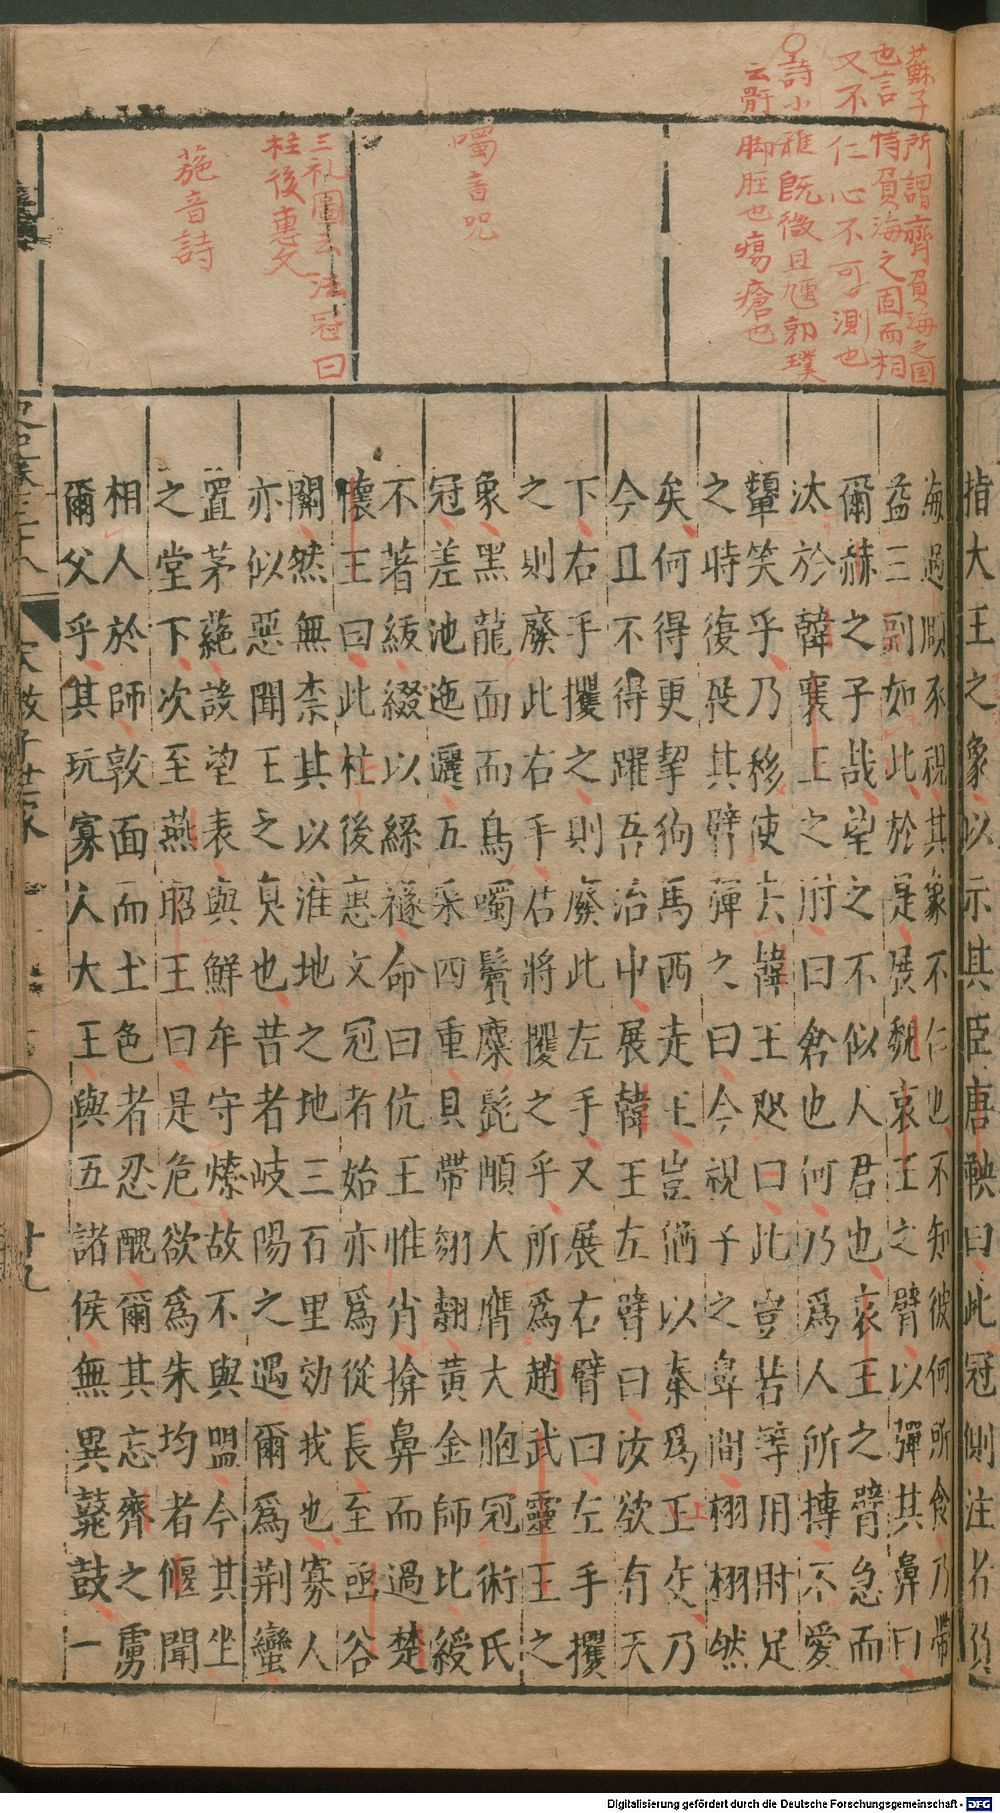 蘇子所謂齊負海之國
也言恃負海之固而相
又不仁心不可測也
○詩小雅既微且尰郭璞
云骭脚脛也瘍瘡也
噣音呪
三礼圖云法冠曰
柱後惠文
葹音詩
指大王之象以示其臣唐鞅曰此冠側注者
海過順不視其象不仁也不知彼何所食乃帶
益三副如此於是展魏哀王之臂以彈其鼻曰
爾赫之子哉望之不似人君也哀王之臂急而
汰於韓襄王之肘曰倉也何乃爲人所摶不愛
顰笑乎乃移使去韓王咫曰此豈若等用肘足
之時復展其臂彈之曰今視子之鼻間栩栩然
矣何得更挈狗馬西走王豈以秦爲王走乃
今且不得躍吾治中展韓王左臂曰汝欲有天
下右手攫之則廢此左手又展右臂曰左手攫
之則廢此右手君將攫之乎所爲趙武靈王之
象黑龍而鳥噣鬢麋髭順大膺大胸冠術氏
冠差池迤邐五采四重貝帶翻黃金師比綬
不著紱綴以絲襚命曰伉王惟肖揜鼻而過楚
懷王曰此柱後惠文冠者始亦爲從長至函谷
關然無柰其以淮地之地三石里効我也寡人
亦似惡聞王之臭也昔者岐陽之遇爾爲荆蠻
置茅蕝設望表與鮮牟守燎故不與盟今其坐
之堂下次至燕昭王曰是危欲爲朱均者偃聞
相人於師敦面而土色者忍醜爾其忘齊之虜
爾父乎其玩寡人大王與五諸侯無異鼓一
史記卷三十八 宋微子世家 廿九
Digitalisierung gefördert durch die Deutsche Forschungsgemeinschaft - DFG